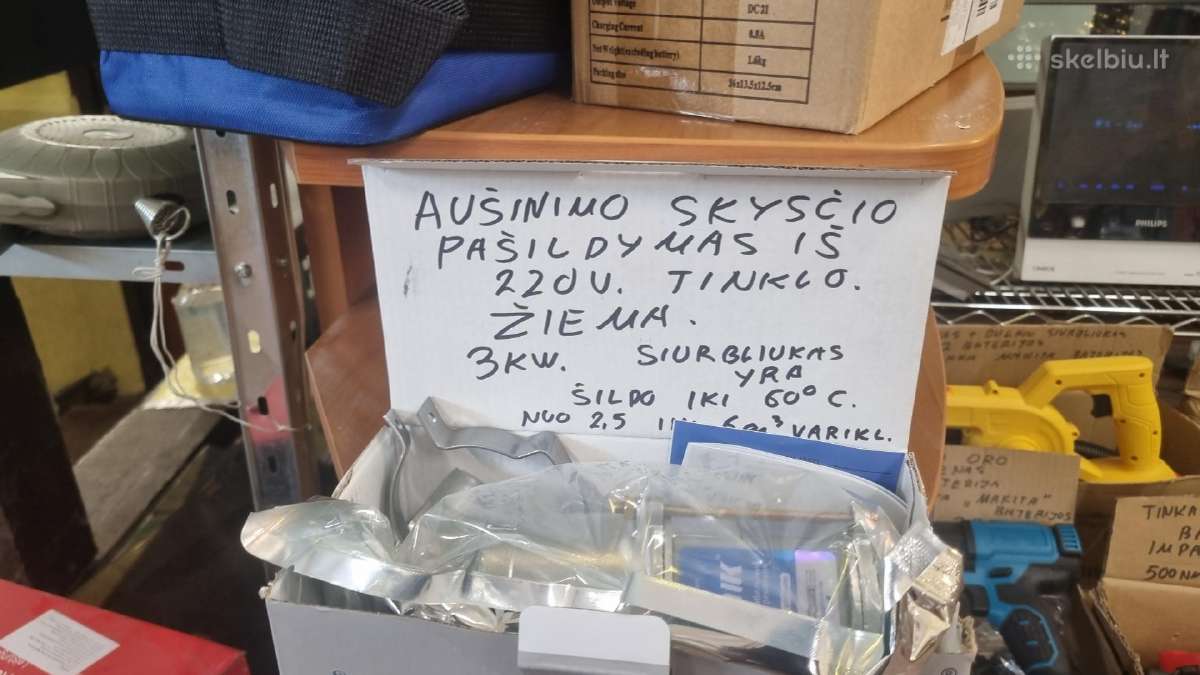 Output Voltage DC 21
Charging Current 0.8A
Net Weight(excluding battery) 1.6kg
Packing size 36x13.5x12.5cm
skelbiu.lt
PHILIPS
AUŠINIMO SKYSČIO
PAŠILDYMAS IŠ
220V. TINKLO.
ŽIEMA.
3KW. SIURBLIUKAS
YRA
ŠILDO IKI 60° C.
NUO 2,5 VARIKL.
SIURBLIUKAS
BATERIJOS
ORO
"MAKITA"
BATERIJOS
TINKA
500N